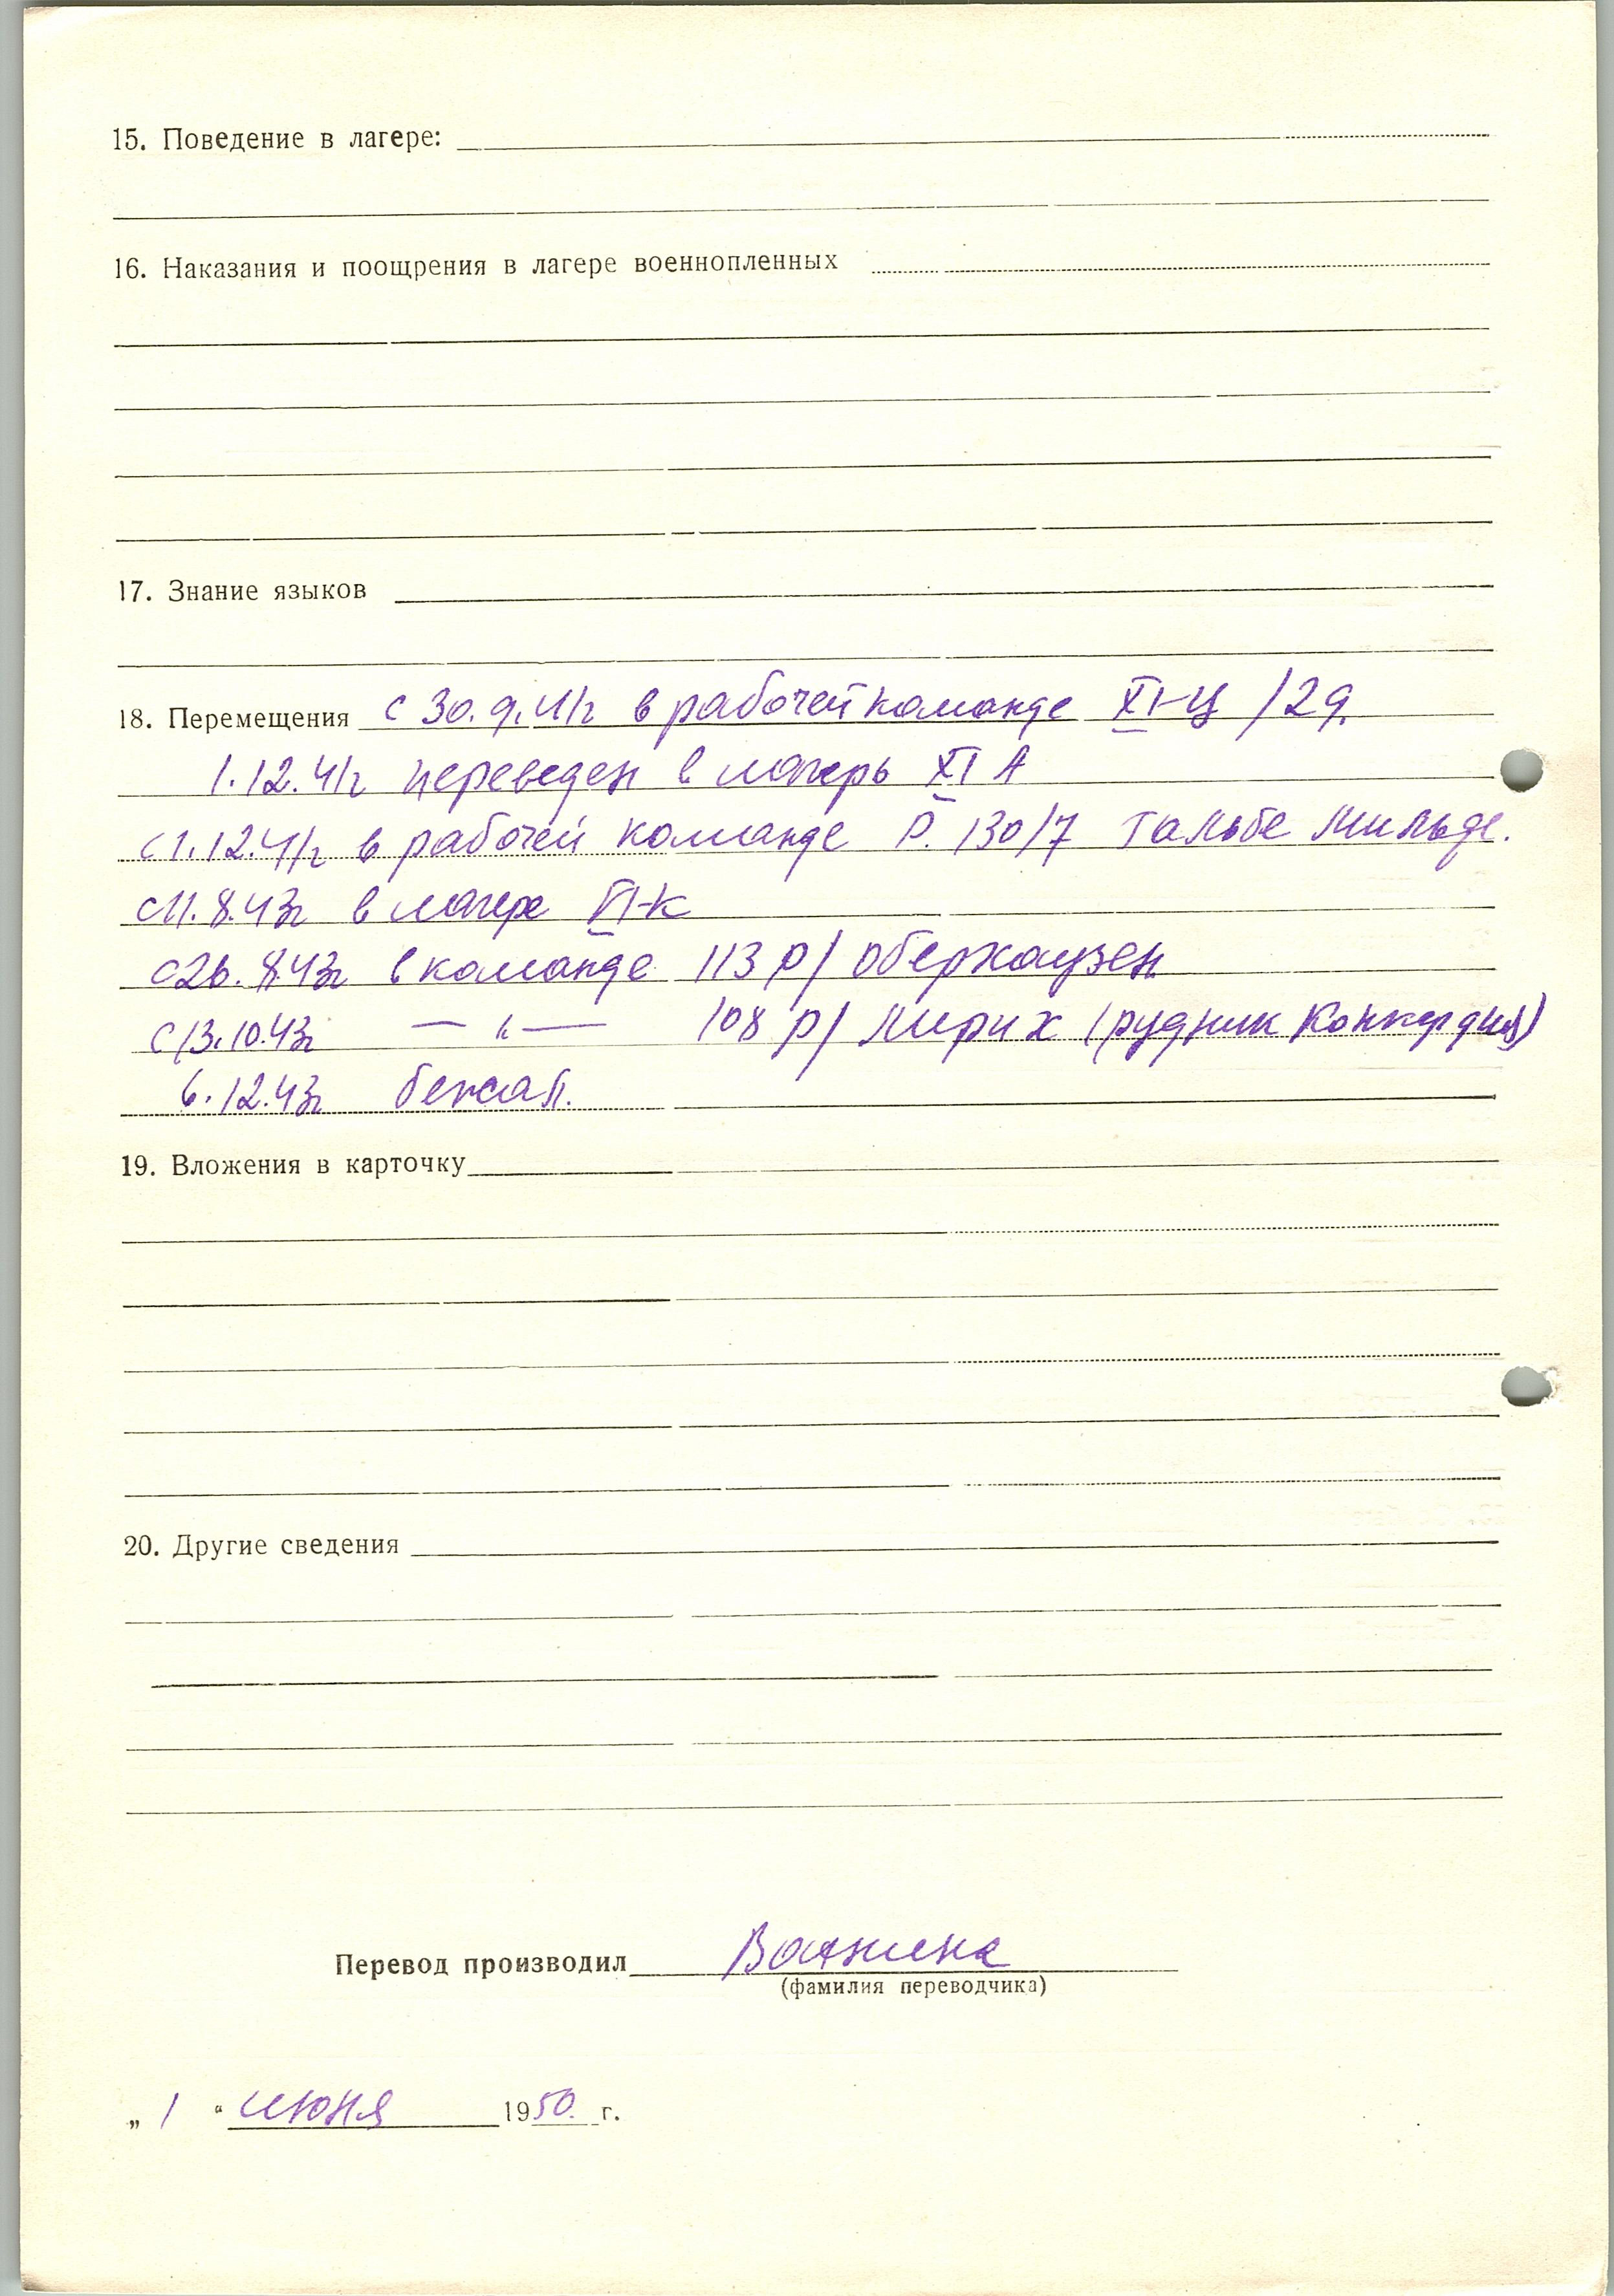 15. Поведение в лагере:
16. Наказания и поощрения в лагере военнопленных
17. Знание языков
18. Перемещения с 30.9.41г в рабочей команде XI-Ц /29.
1.12.41г переведен в лагерь XI А
с 1.12.41г в рабочей команде Р. 130/7 Тальбе Мильде.
с 11.8.43г в лагере VI-К
с 26.8.43г в команде 113 р/ Оберхаузен
с 13.10.43г — " — 108 р/ Лирих (рудник Конкордия)
6.12.43г бежал.
19. Вложения в карточку
20. Другие сведения
Перевод производил
(фамилия переводчика)
„ 1 “ июня 1950 г.